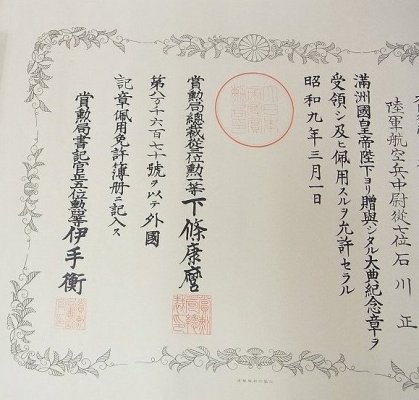 陸軍航空兵中尉從七位石川正
滿洲國皇帝陛下ヨリ贈與シタル大典紀念章ヲ
受領シ及ヒ佩用スルヲ允許セラル
昭和九年三月一日
賞勲局總裁從三位勲一等下條康麿
第八万千六百七十號ヲ以テ外國
記章佩用免許簿册ニ記入ス
賞勲局書記官正五位勲四等伊手衡